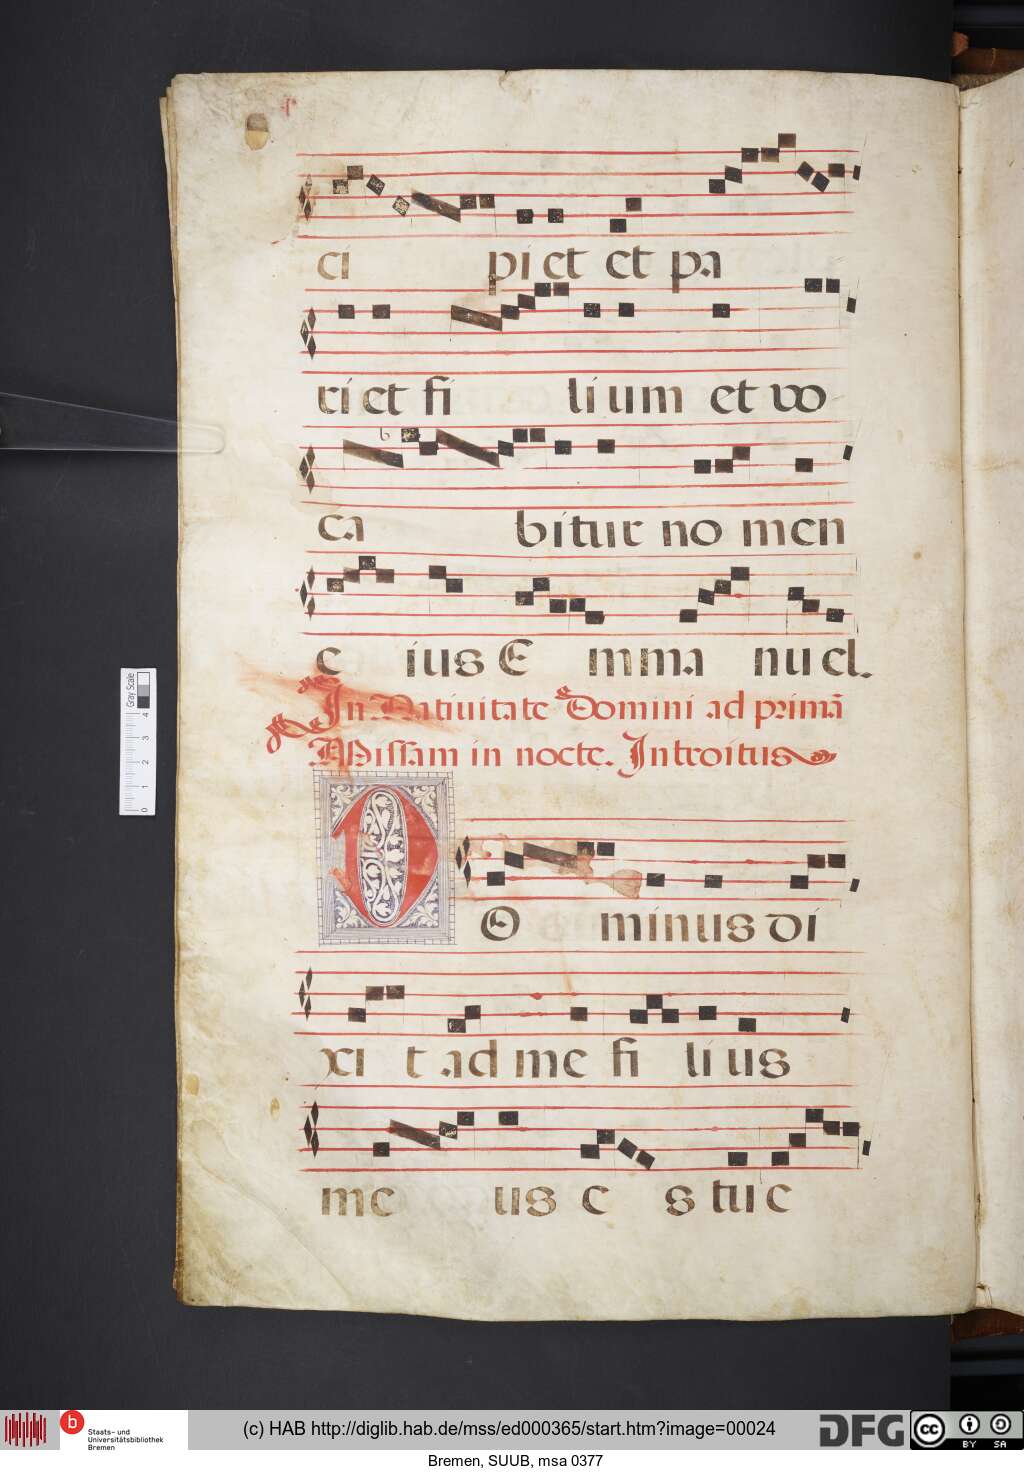 ci pi et et pa
ri et fi li um et vo
ca bitur no men
e ius E mma nu el.
In Natiuitate Domini ad primã
Missam in nocte. Introitus
DO minus di
xi t ad me fi li us
me us e s tu e
Gray Scale
0 1 2 3 4
b Staats- und
Universitätsbibliothek
Bremen
(c) HAB http://diglib.hab.de/mss/ed000365/start.htm?image=00024
DFG
cc BY SA
Bremen, SUUB, msa 0377